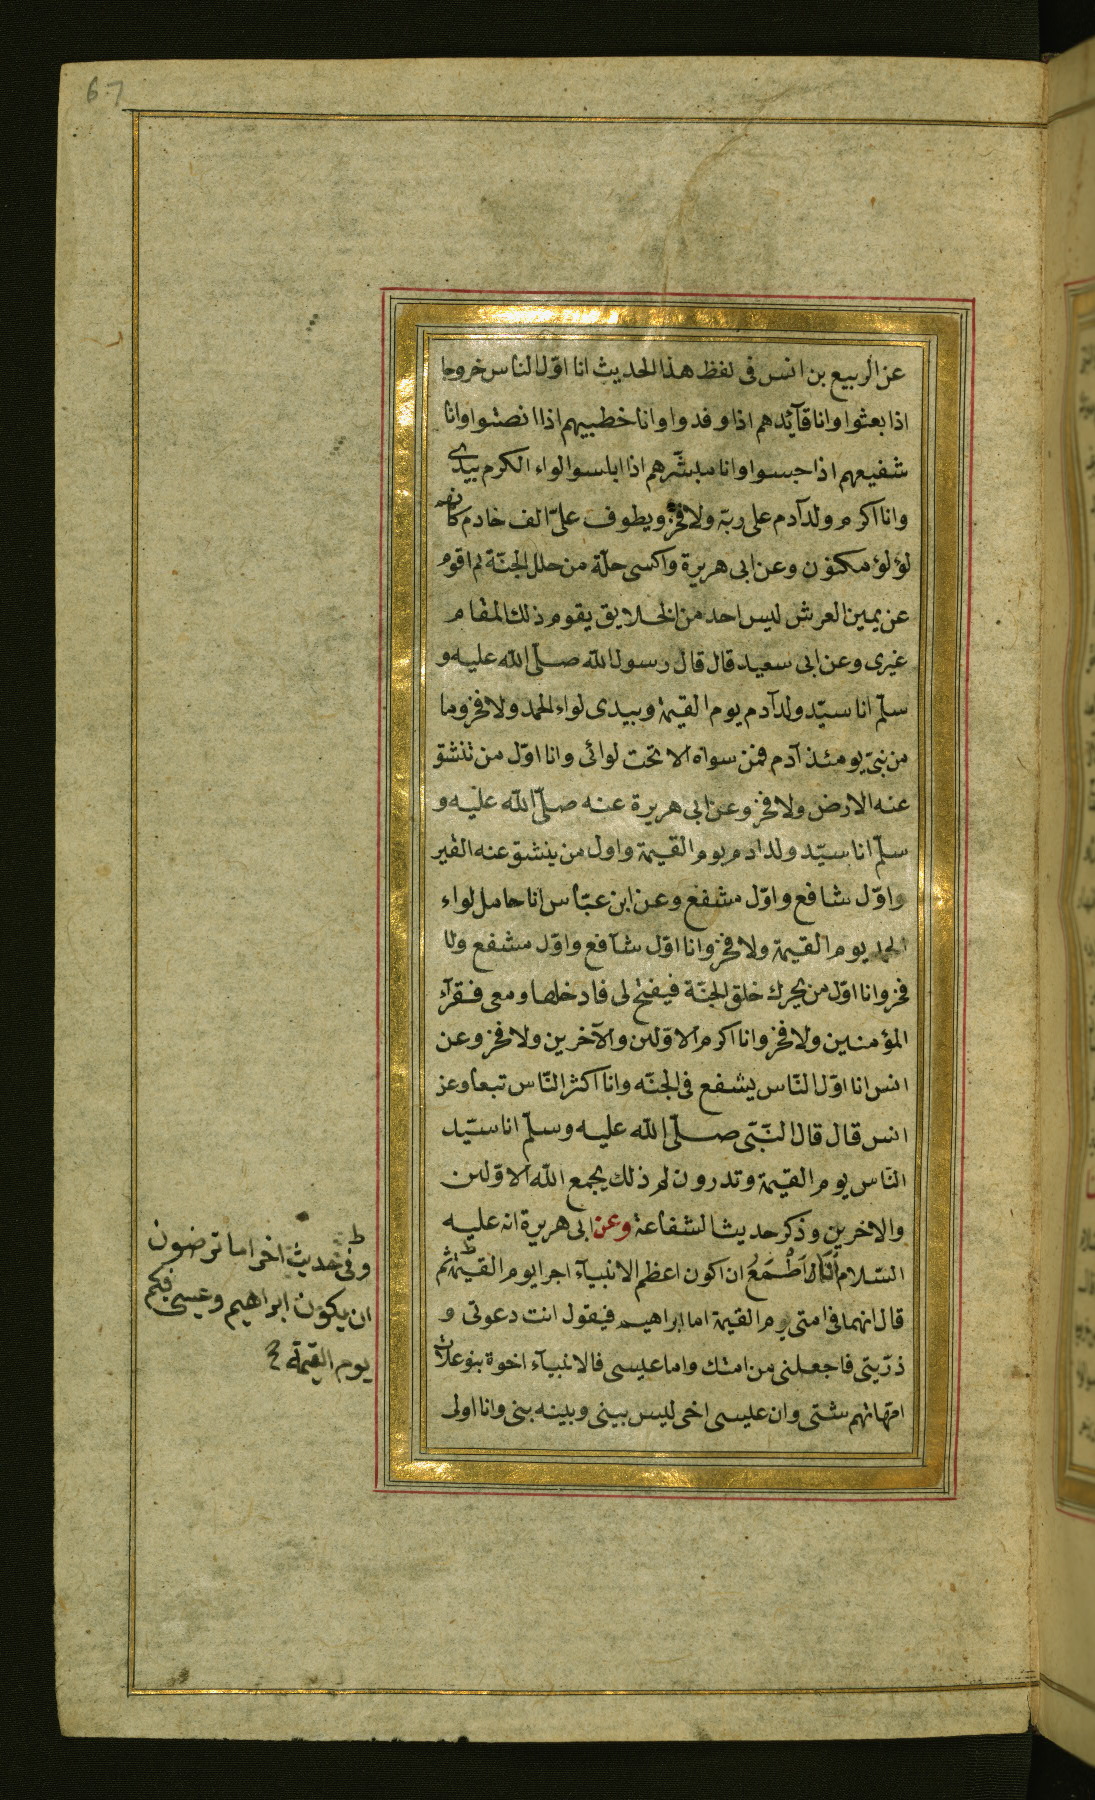 6.7
عن الربيع بن انس فى لفظ هذا الحديث انا اوّل الناس خروجا
اذا بعثوا وانا قآئدهم اذا وفدوا وانا خطيبهم اذا انصتوا وانا
شفيعهم اذا حبسوا وانا مبشّرهم اذا ابلسوا لواء الكرم بيدى
وانا اكرم ولد آدم على ربّه ولا فخر ويطوف علىّ الف خادم كانهم
لؤلؤ مكنون وعن ابى هريرة واكسى حلّة من حلل الجنّة ثم اقوم
عن يمين العرش ليس احد من الخلايق يقوم ذلك المقام
غيرى وعن ابى سعيد قال قال رسول الله صلّى الله عليه و
سلّم انا سيّد ولد آدم يوم القيمة وبيدى لواء الحمد ولا فخر وما
من نبىّ يومئذ آدم فمن سواه الا تحت لوائى وانا اوّل من تنشق
عنه الارض ولا فخر وعن ابى هريرة عنه صلّى الله عليه و
سلّم انا سيّد ولد ادم يوم القيمة واول من ينشق عنه القبر
واوّل شافع واوّل مشفع وعن ابن عبّاس انا حامل لواء
الحمد يوم القيمة ولا فخر وانا اوّل شآفع واوّل مشفع ولا
فخر وانا اوّل من يحرك حلق الجنّة فيفتح لى فادخلها ومعى فقرآء
المؤمنين ولا فخر وانا اكرم الاوّلين والآخرين ولا فخر وعن
انس انا اوّل النّاس يشفع فى الجنّه وانا اكثر النّاس تبعا وعن
انس قال قال النّبّى صلّى الله عليه وسلّم انا سيّد
النّاس يوم القيمة وتدرون لم ذلك يجمع الله الاوّلين
والاخرين وذكر حديث الشفاعة وعن ابى هريرة انه عليه
السّلام قال اَطْمَعُ ان اكون اعظم الانبيآء اجرا يوم القيمة ثم
قال انهما فى امتى يوم القيمة اما ابراهيم فيقول انت دعوتى و
ذرّيتى فاجعلنى من امتك واما عيسى فالانبيآء اخوة بنو علات
امّهاتهم شتى وان عيسى اخى ليس بينى وبينه نبى وانا اولى
وفى حديث اخر اما ترضون
ان يكون ابراهيم وعيسى فيكم
يوم القيمة